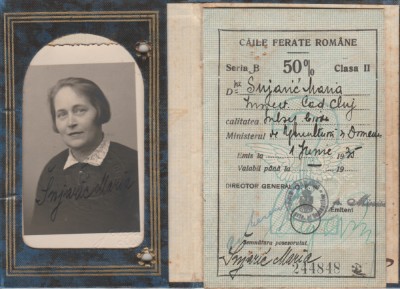 Snjarić Maria
CĂILE FERATE ROMÂNE
Seria B 50% Clasa II
D-na Snjarić Maria
Cluj
calitatea
Ministerul de Agricultură și Domenii
Emis la 1 Iunie 1935
Valabil până la 19
DIRECTOR GENERAL
Emitent
Semnătura posesorului,
Snjarić Maria
244848